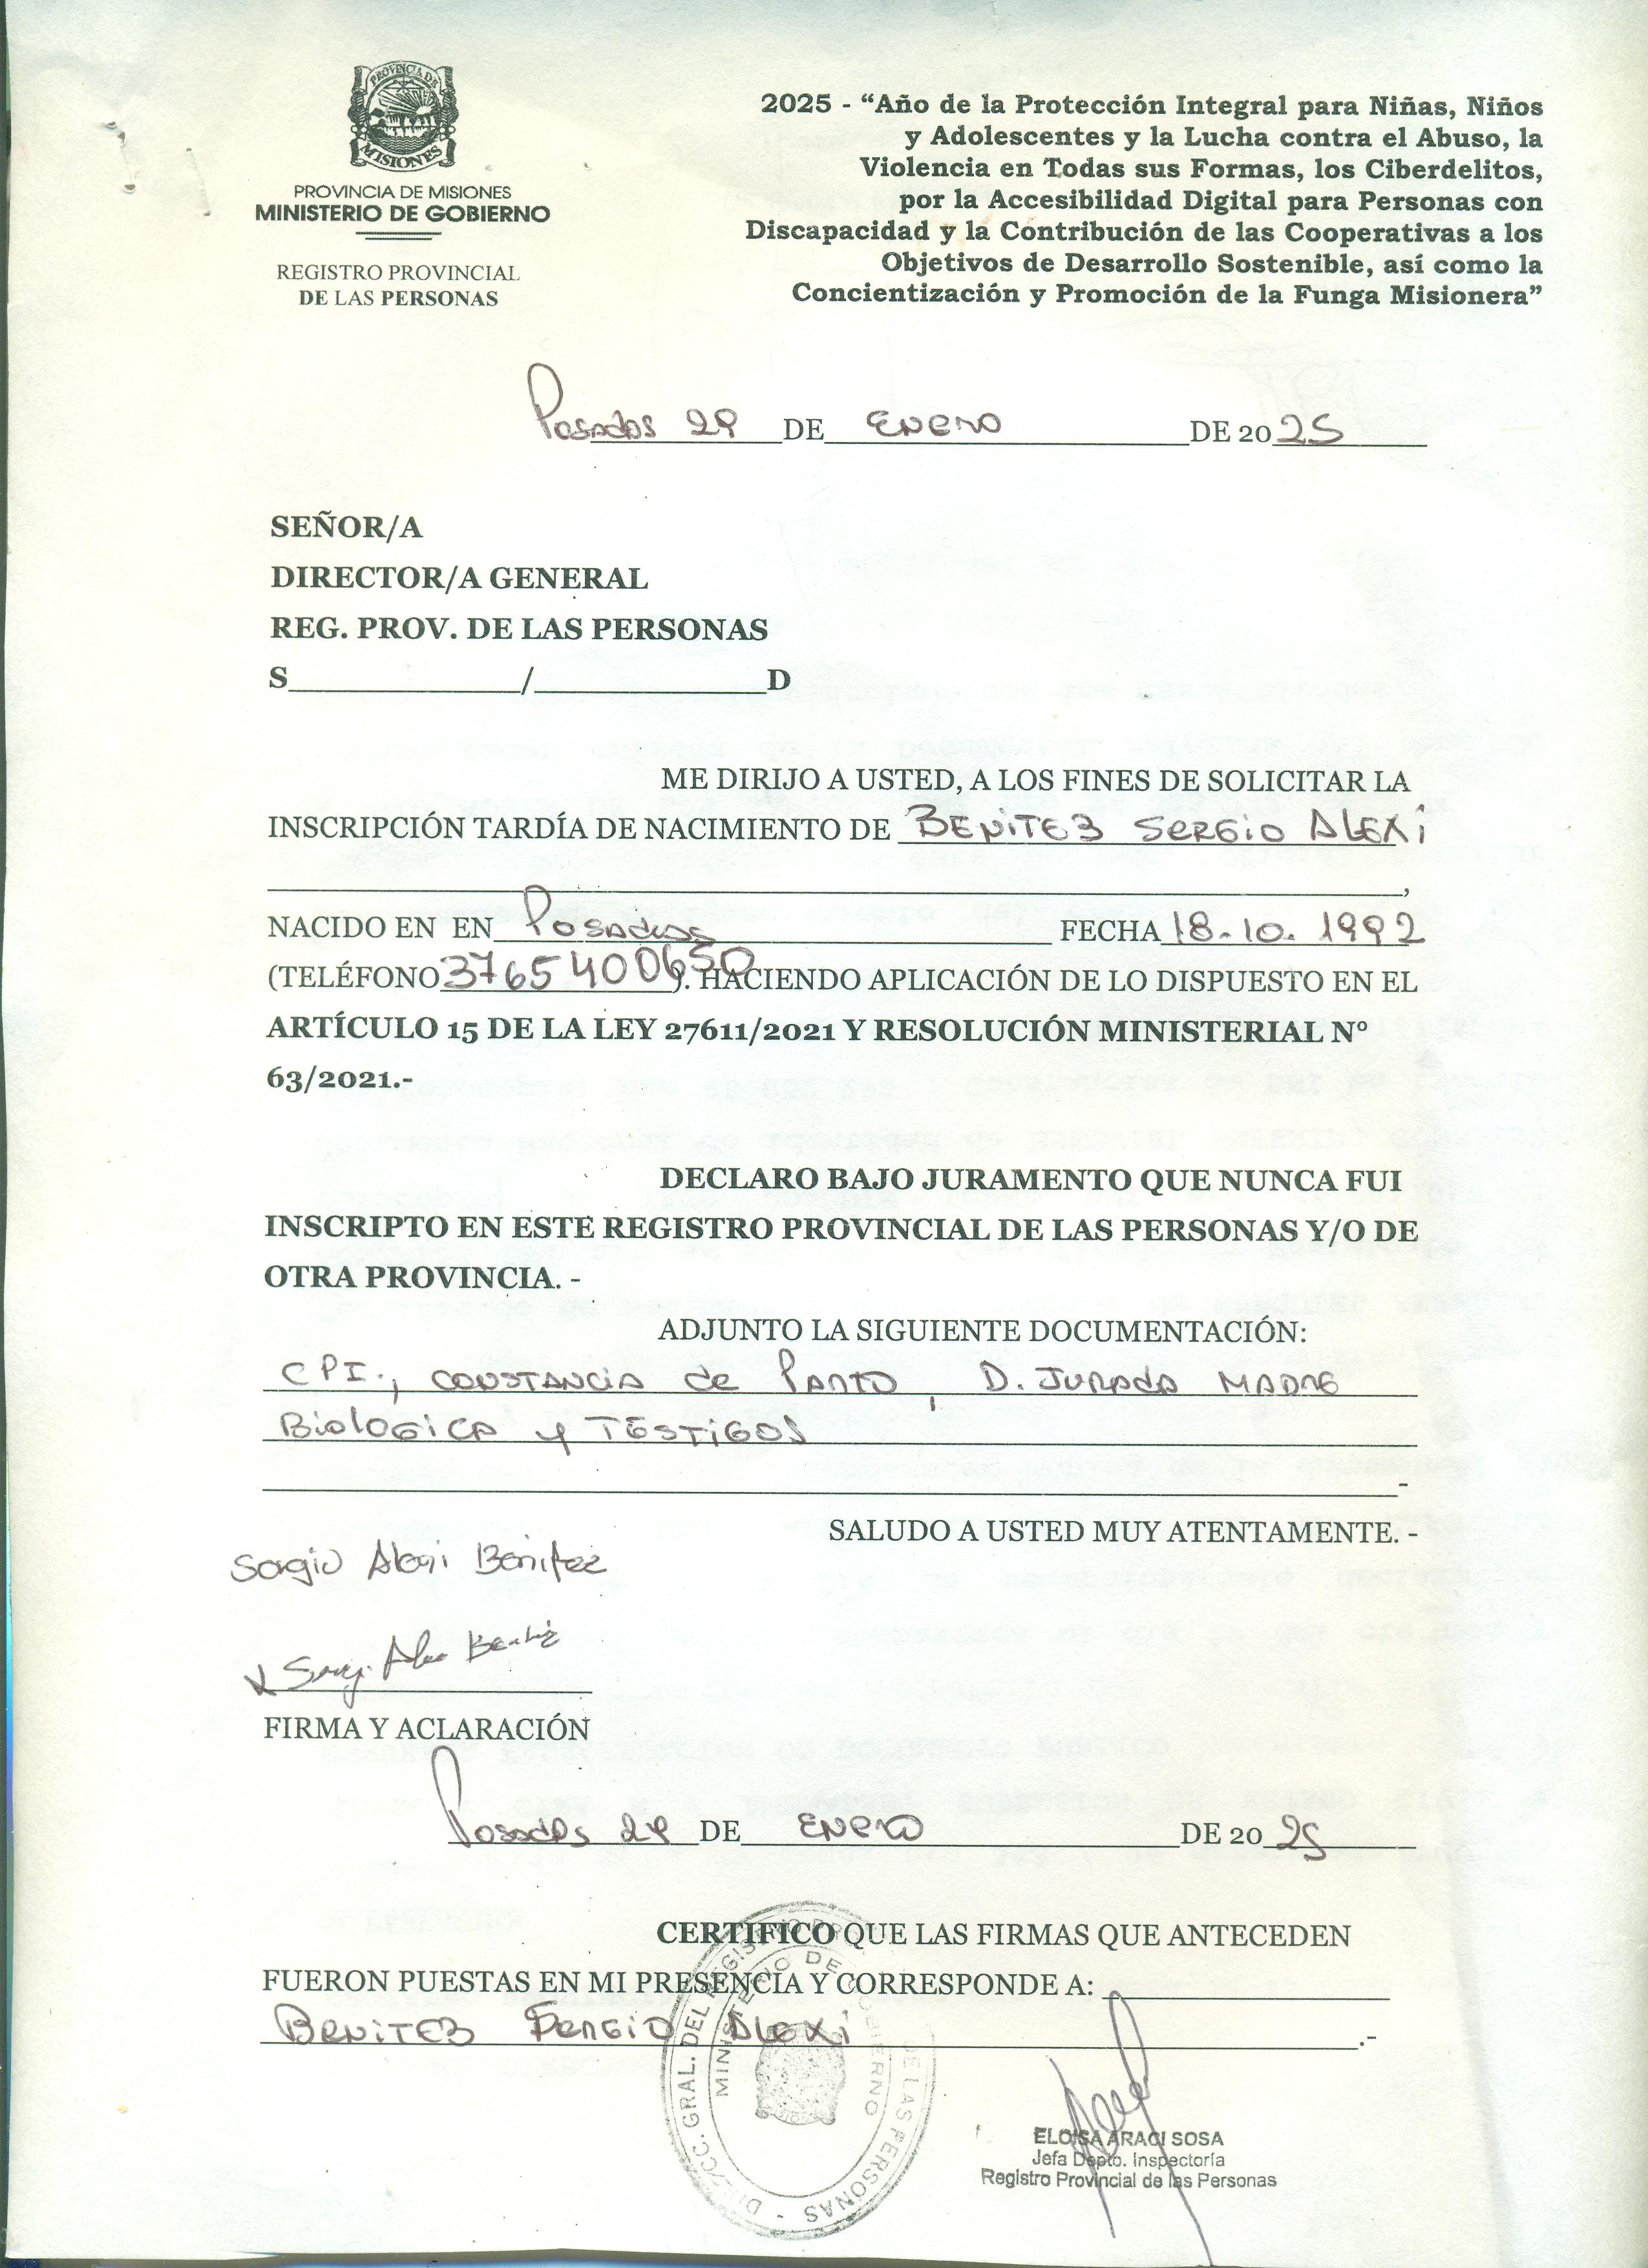 PROVINCIA DE
MISIONES
PROVINCIA DE MISIONES
MINISTERIO DE GOBIERNO
REGISTRO PROVINCIAL
DE LAS PERSONAS
2025 - “Año de la Protección Integral para Niñas, Niños
y Adolescentes y la Lucha contra el Abuso, la
Violencia en Todas sus Formas, los Ciberdelitos,
por la Accesibilidad Digital para Personas con
Discapacidad y la Contribución de las Cooperativas a los
Objetivos de Desarrollo Sostenible, así como la
Concientización y Promoción de la Funga Misionera”
Posadas 29 DE ENERO DE 2025
SEÑOR/A
DIRECTOR/A GENERAL
REG. PROV. DE LAS PERSONAS
S____________/____________D
ME DIRIJO A USTED, A LOS FINES DE SOLICITAR LA
INSCRIPCIÓN TARDÍA DE NACIMIENTO DE BENITEZ SERGIO ALEXI
,
NACIDO EN EN Posadas FECHA 18-10-1992
(TELÉFONO 3765400650). HACIENDO APLICACIÓN DE LO DISPUESTO EN EL
ARTÍCULO 15 DE LA LEY 27611/2021 Y RESOLUCIÓN MINISTERIAL Nº
63/2021.-
DECLARO BAJO JURAMENTO QUE NUNCA FUI
INSCRIPTO EN ESTE REGISTRO PROVINCIAL DE LAS PERSONAS Y/O DE
OTRA PROVINCIA. -
ADJUNTO LA SIGUIENTE DOCUMENTACIÓN:
CPI., CONSTANCIA de PARTO, D. JURADA MADRE
BIOLOGICA y TESTIGOS
-
SALUDO A USTED MUY ATENTAMENTE. -
Sergio Alexi Benitez
FIRMA Y ACLARACIÓN
Posadas 29 DE ENERO DE 2025
CERTIFICO QUE LAS FIRMAS QUE ANTECEDEN
FUERON PUESTAS EN MI PRESENCIA Y CORRESPONDE A:
BENITEZ SERGIO ALEXI .-
GRAL. DEL REGISTRO DE LAS PERSONAS
MINISTERIO DE GOBIERNO
ELOISA ARACI SOSA
Jefa Depto. Inspectoría
Registro Provincial de las Personas